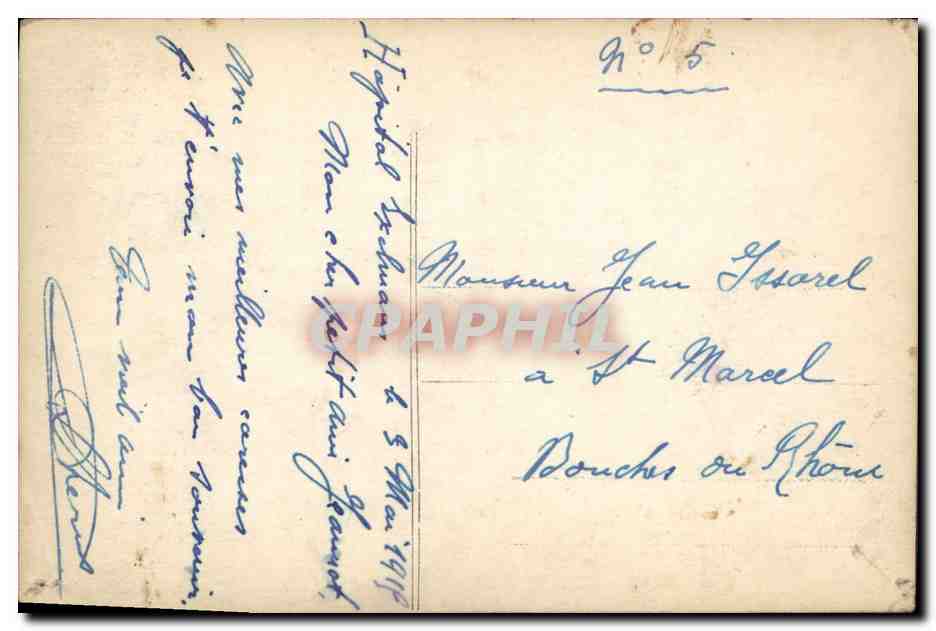 N° 5
Hôpital Exelmans le 3 Mai 191
Mon cher petit ami Jeannot,
Avec mes meilleures caresses
je t'envoi mon bon souvenir.
Ton vieil ami
Monsieur Jean Issorel
à St Marcel
Bouches du Rhône
CPAPHIL